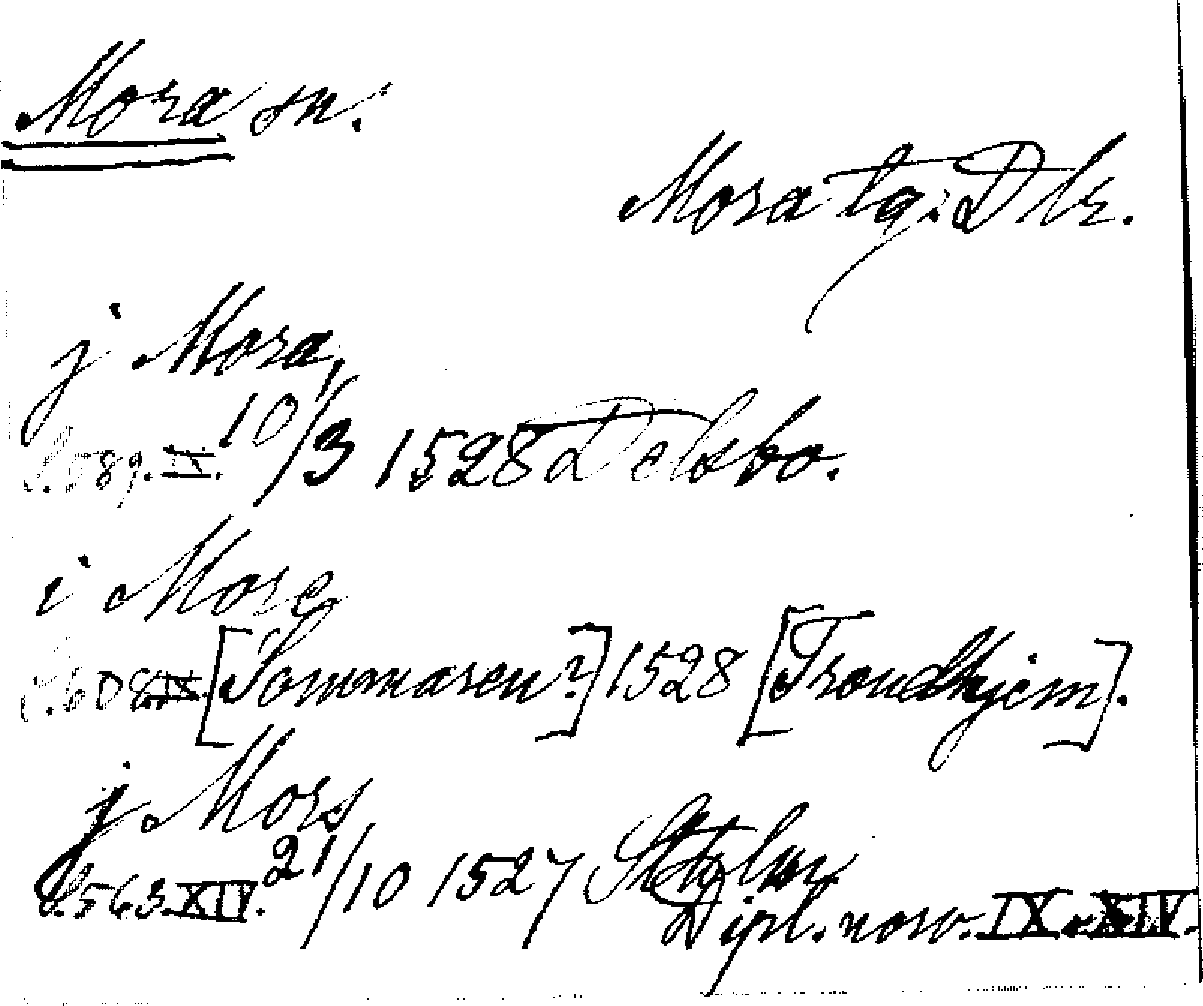 Mora sn.
Mora tg. Dlr.
j Mora,
S. 589. IX. 10/3 1528 Delsbo.
i More
S. 608 IX. [Sommaren?] 1528 [Trondhjem].
j Mors
S. 563. XIV. 21/10 1527 Sthlm
Dipl. norv. IX o. XIV.